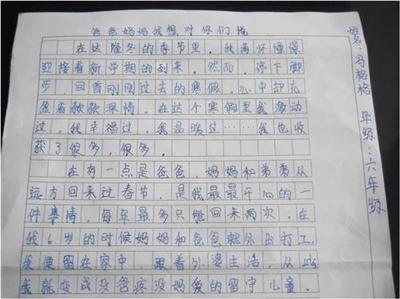 爸爸妈妈我想对你们说
在这隆冬的季节里，我满怀憧憬
迎接着新学期的到来。然而，停下脚
步，回首刚刚过去的寒假，心中却充
盈着款款深情。在这个寒假里我感动
过，我幸福过，我品味过……我也收
获了很多，很多。
在有一点是爸爸，妈妈和弟弟从
远方回来过春节，是我最最开心的一
件事情，每年最多只能回来两次。在
我6岁的时候妈妈和爸爸就外出打工，
我便留在家中 跟着外婆生活，从此
我就变成没爸疼没妈爱的留守儿童。
冯格格
年级：六年级